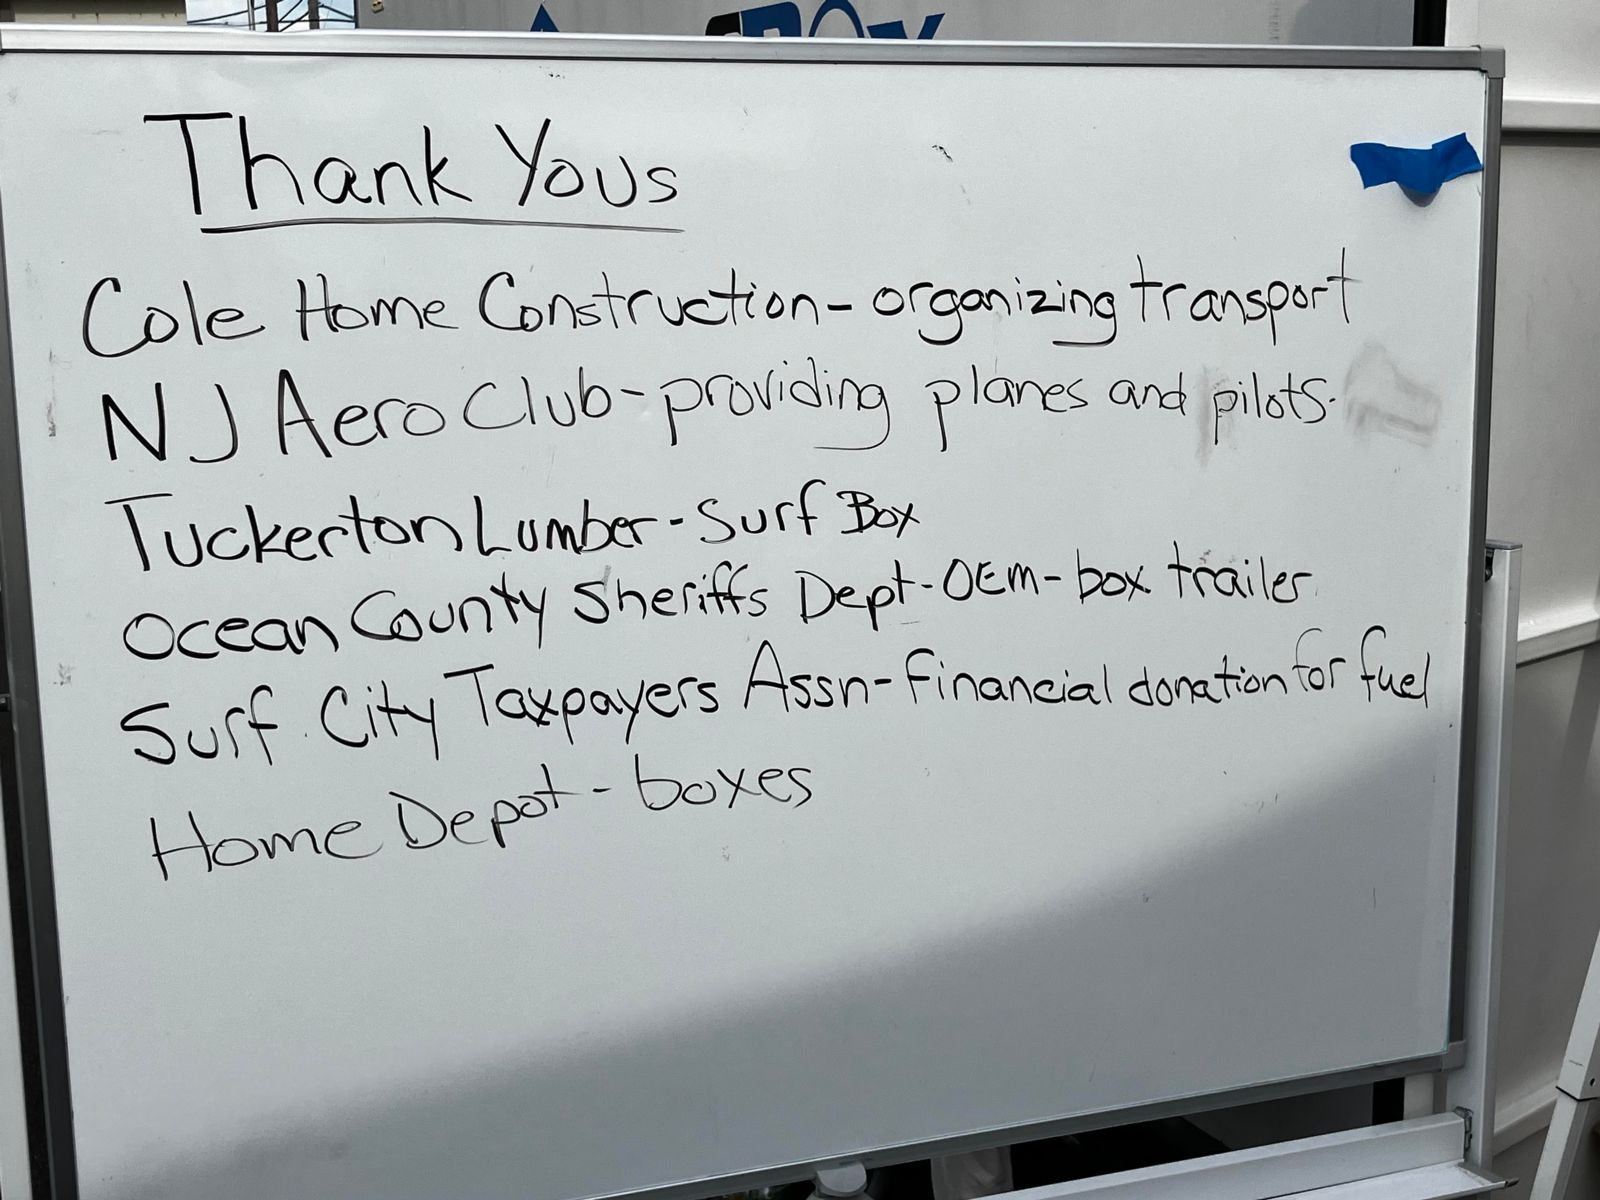 Thank Yous
Cole Home Construction - organizing transport
NJ Aero Club - providing planes and pilots.
Tuckerton Lumber - Surf Box
Ocean County Sheriffs Dept - OEM - box trailer
Surf City Taxpayers Assn - financial donation for fuel
Home Depot - boxes